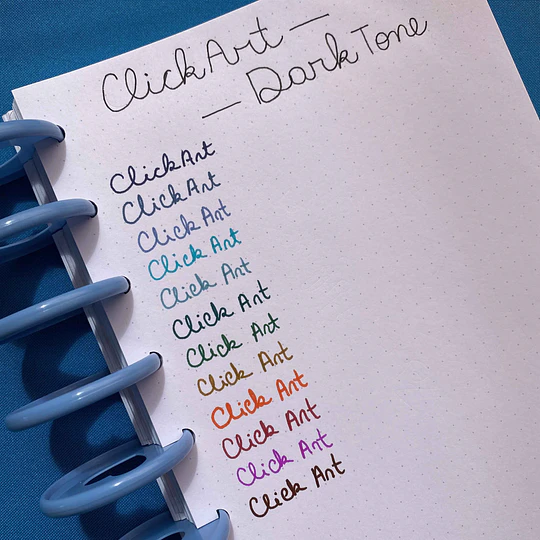 ClickArt —
— Dark Tone
ClickArt
ClickArt
ClickArt
Click Art
Click Art
Click Art
Click Art
Click Art
Click Art
Click Art
Click Art
Click Art